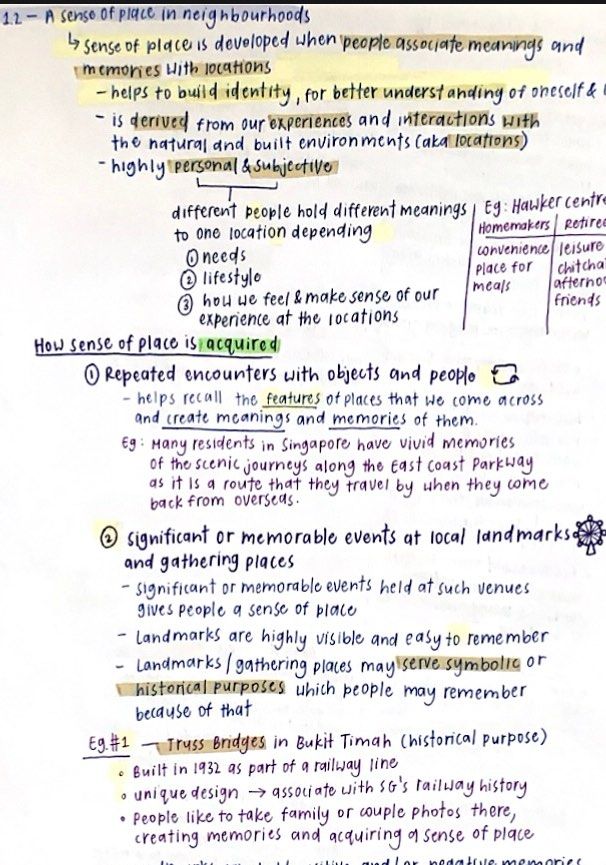 1.2 - A sense of place in neighbourhoods
↳ sense of place is developed when people associate meanings and
memories with locations
- helps to build identity, for better understanding of oneself &
- is derived from our experiences and interactions with
the natural and built environments (aka locations)
- highly personal & subjective
different people hold different meanings
to one location depending
① needs
② lifestyle
③ how we feel & make sense of our
experience at the locations
Eg: Hawker centre
Homemakers | Retiree
convenience | leisure
place for | chitcha
meals | afterno
friends
How sense of place is acquired
① Repeated encounters with objects and people
- helps recall the features of places that we come across
and create meanings and memories of them.
Eg: Many residents in Singapore have vivid memories
of the scenic journeys along the East Coast Parkway
as it is a route that they travel by when they come
back from overseas.
② significant or memorable events at local landmarks
and gathering places
- significant or memorable events held at such venues
gives people a sense of place
- landmarks are highly visible and easy to remember
- Landmarks / gathering places may serve symbolic or
historical purposes which people may remember
because of that
Eg.#1 - Truss Bridges in Bukit Timah (historical purpose)
• Built in 1932 as part of a railway line
• unique design → associate with SG's railway history
• People like to take family or couple photos there,
creating memories and acquiring a sense of place
and/or negative memories